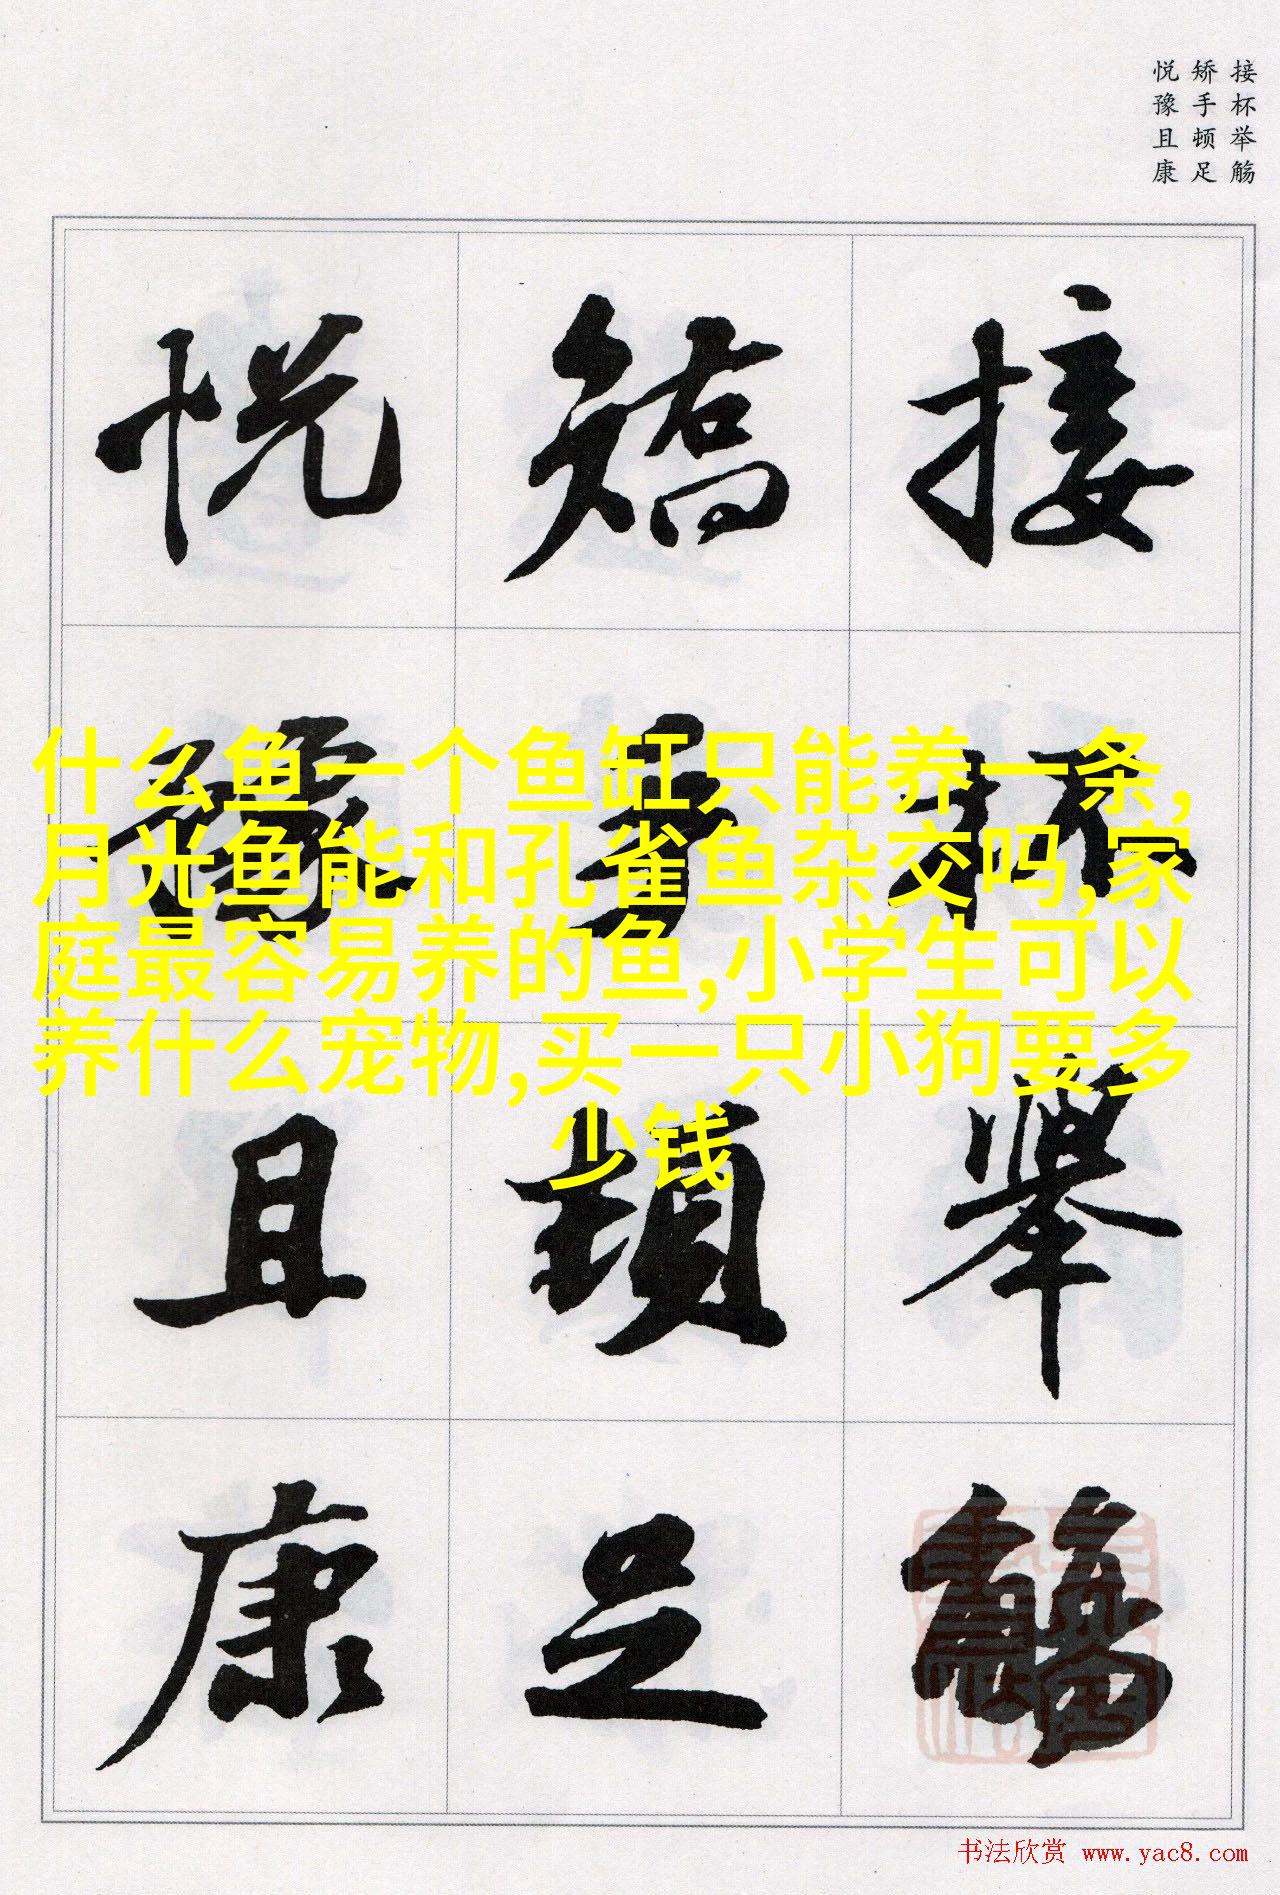 接杯举觞
矫手顿足
悦豫且康
接杯舉觴
矯手頓足
悦豫且康
什么鱼一个鱼缸只能养一条,
月光鱼能和孔雀鱼杂交吗,家
庭最容易养的鱼,小学生可以
养什么宠物,买一只小狗要多
少钱
书法欣赏 www.yac8.com